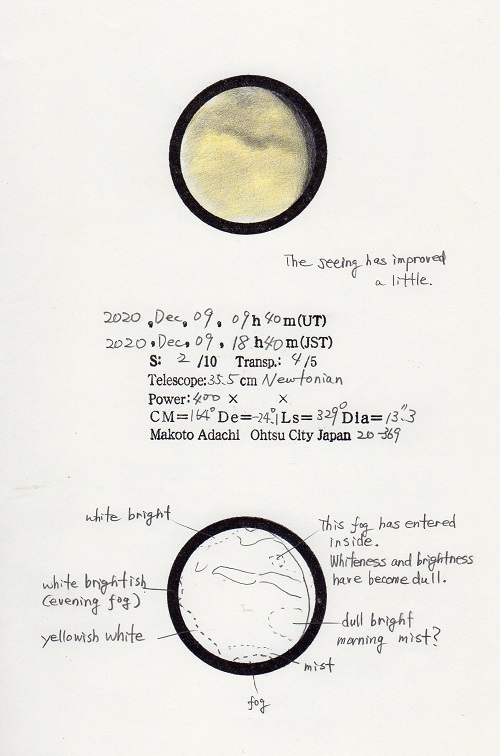 The seeing has improved
a little.
2020, Dec, 09, 09h40m(UT)
2020, Dec, 09, 18h40m(JST)
S: 2 /10 Transp.: 4/5
Telescope: 35.5 cm Newtonian
Power: 400 × ×
CM=164° De=-24.1 Ls=329° Dia=13".3
Makoto Adachi Ohtsu City Japan 20-369
white bright
This fog has entered
inside.
Whiteness and brightness
have become dull.
white brightish
(evening fog)
yellowish white
dull bright
morning mist?
mist
fog